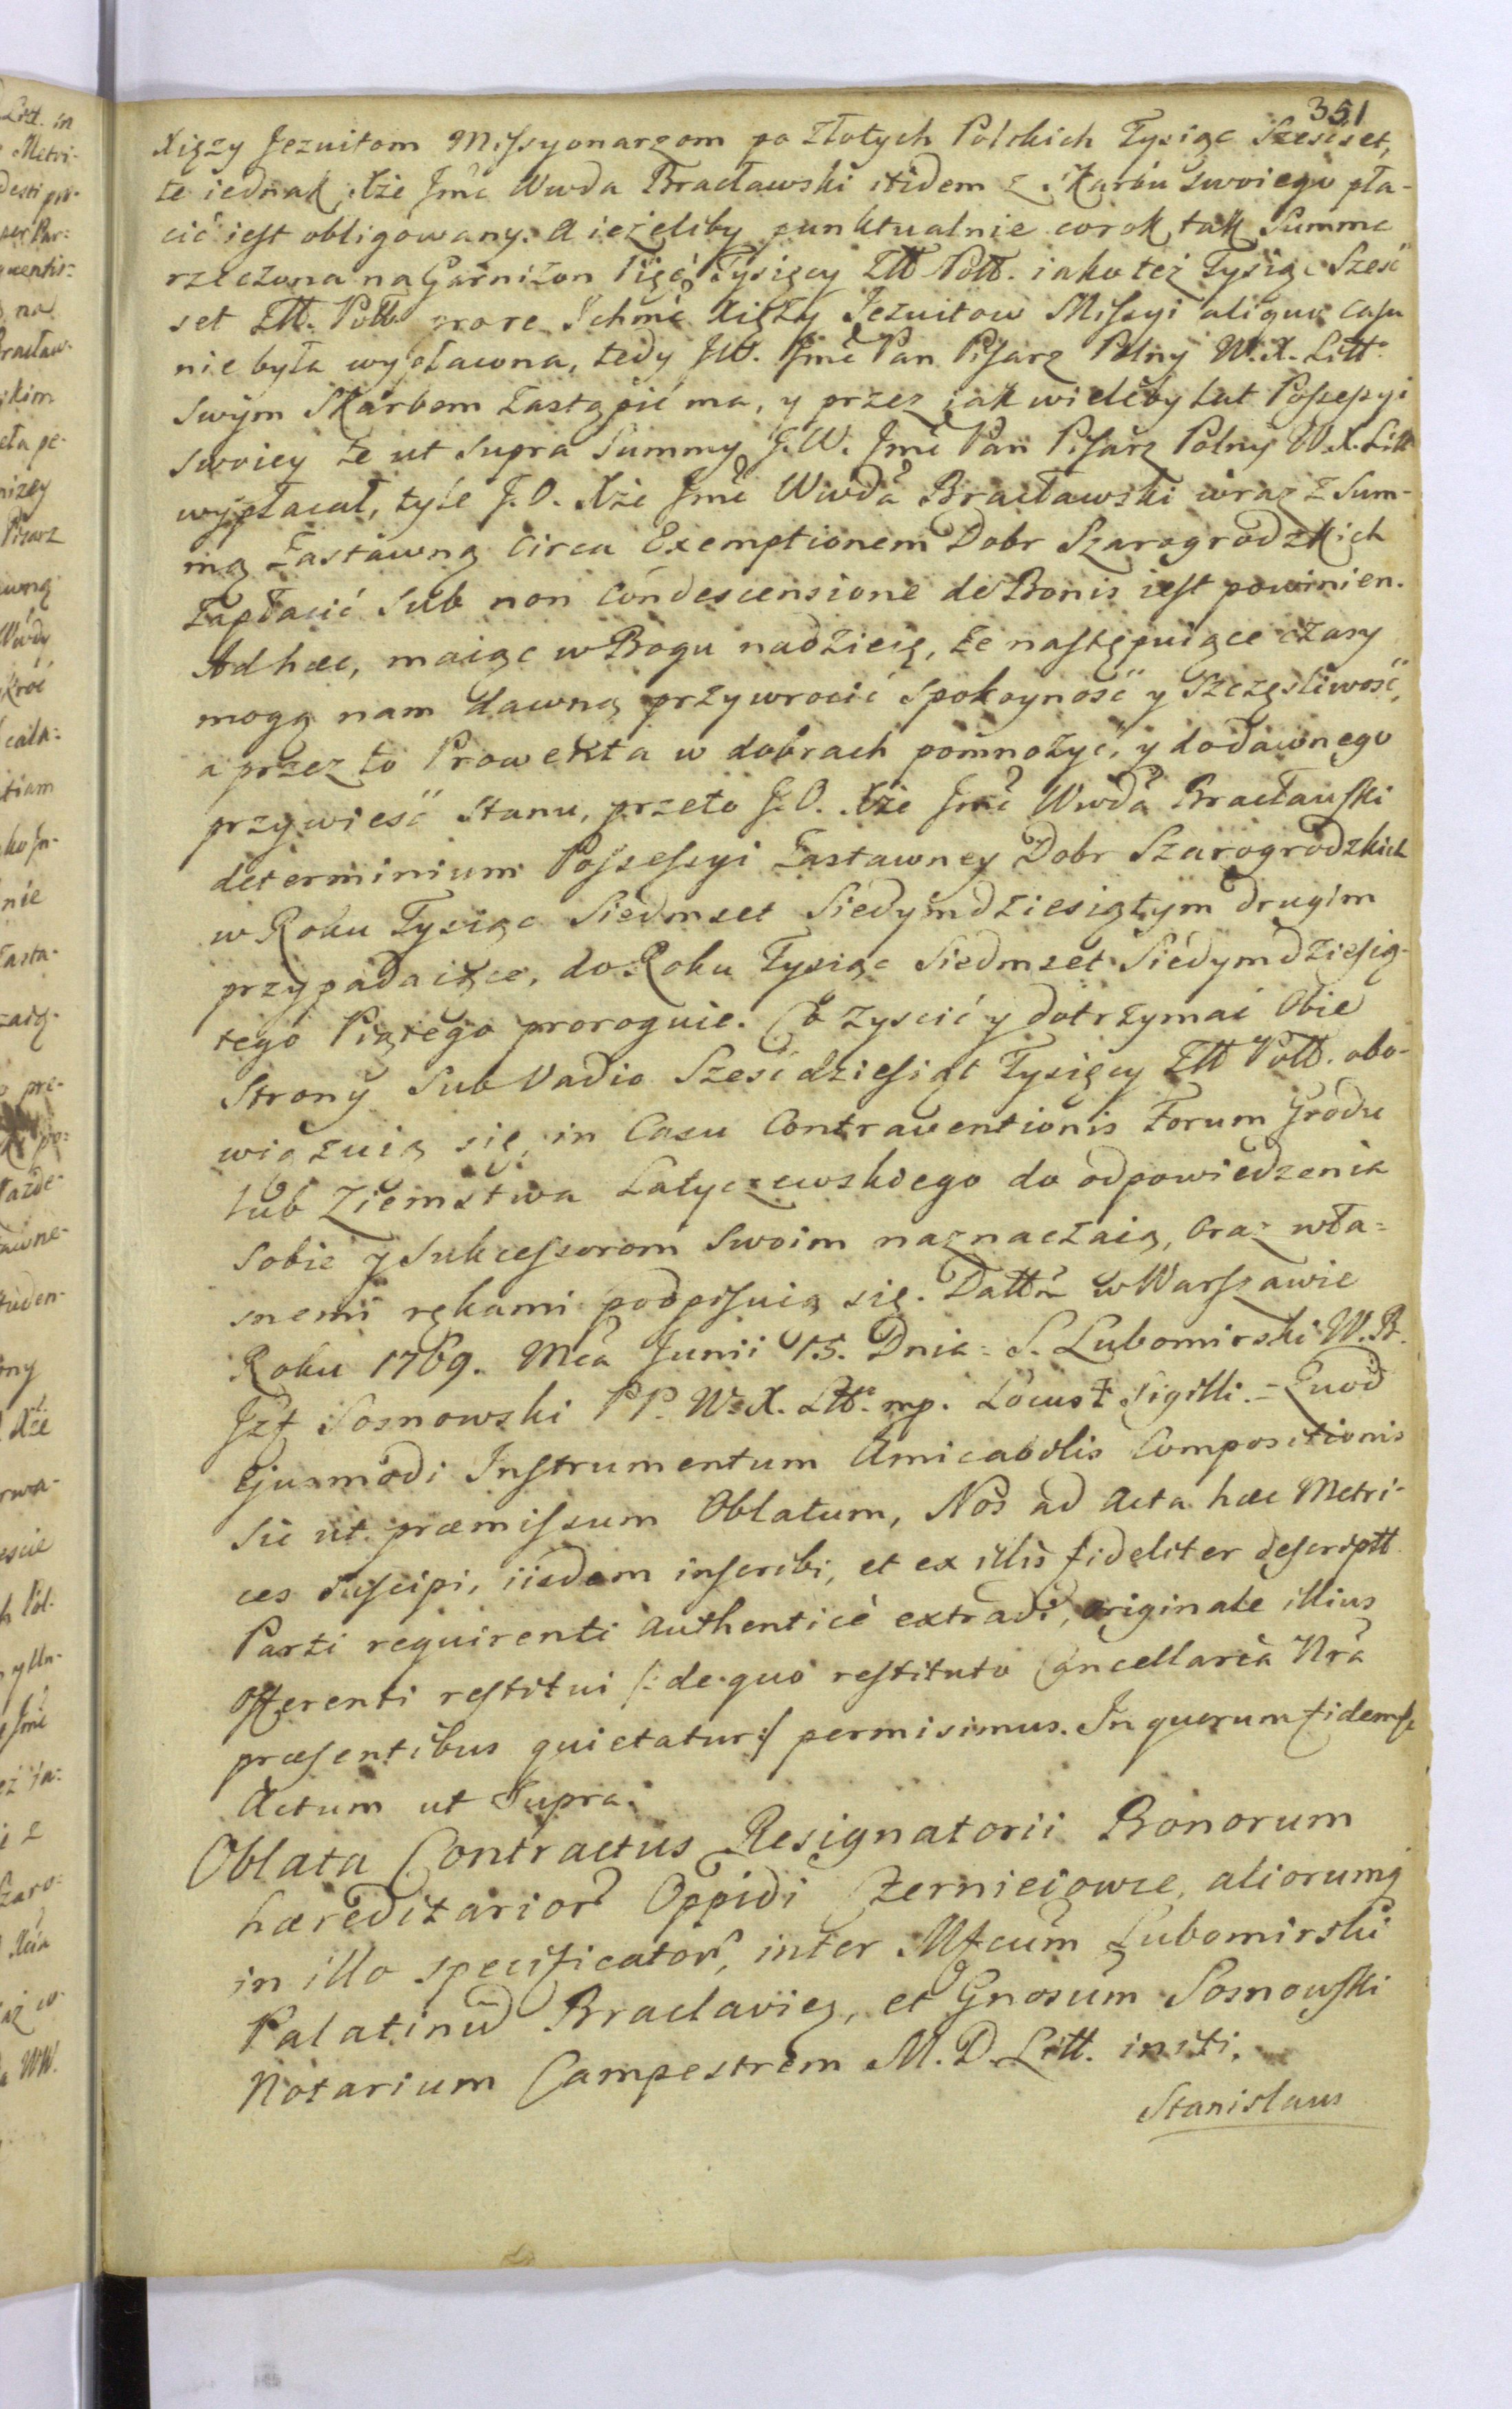 351
Xięzy Jezuitom Missyonarzom po Złotych Polskich Tysiąc Szesćset,
te iednak Xże Jmć Wwda Bracławski itidem z Skarbu swoiego pła-
cić iest obligowany. A ieżeliby punktualnie corok tak Summa
rzeczona na Garnizon Pięć Tysięcy Złł Poll. iako też Tysiąc Szesć
set Złł. Poll. pro re Ichmć Xięży Jezuitow Missyi aliquo casu
nie była wypłacona, tedy JW. Jmć Pan Pisarz Polny W. X. Litt.
swym Skarbem zastąpić ma, y przez iak wieleby lat Possessyi
swoiey te ut supra Summy J. W. Jmć Pan Pisarz Polny W. X. Litt
wypłacał, tyle J. O. Xże Jmć Wwda Bracławski wraz z Sum-
mą Zastawną circa Exemptionem Dobr Szarogrodzkich
zapłacić sub non Condescensione de Bonis iest powinien.
Ad hæc, maiąc w Bogu nadzieię, że następuiące czasy
mogą nam dawną przywrocić spokoyność y szczęśliwość,
a przez to Prowekta w dobrach pomnożyć, y do dawnego
przywieść stanu, przeto J. O. Xże Jmć Wwda Bracławski
determinium Possessyi Zastawney Dobr Szarogrodzkich
w Roku Tysiąc Siedmset Siedymdziesiątym drugim
przypadaiące, do Roku Tysiąc Siedmset Siedymdziesią-
tego Piątego proroguie. Co zyscić y dotrzymać Obie
Strony sub Vadio Sześćdziesiąt Tysięcy Złł Poll. obo-
wiązuią się, in Casu Contraventionis Forum Grodu
lub Ziemstwa Latyczewskiego do odpowiedzenia
sobie y Sukcessorom swoim naznaczaią, oraz wła-
snemi rękami podpisuią się. Datt w Warszawie
Roku 1769. Mca Junii 15. Dnia = S. Lubomirski W. B.
Jzf Sosnowski P P. W. X. Litt. mp. Locus Ł Sigilli. = Quod
Ejusmodi Instrumentum Amicabilis Compositionis
sic ut præmissum Oblatum, Nos ad Acta hæc Metri-
ces suscipi, iisdem inscribi, et ex illis fideliter descriptt
Parti requirenti Authenticè extradi, originale illius
Offerenti restitui /: de quo restituto Cancellaria Nra
præsentibus quietatur :/ permisimus. In quorum fidem &
Actum ut Supra.
Oblata Contractus Resignatorii Bonorum
hæreditarior Oppidi Czernieiowce, aliorumq
in illo specificator, inter Mfcum Lubomirski
Palatinu Braclavien, et Gnosum Sosnowski
Notarium Campestrem M. D. Litt. initi.
Stanislaus